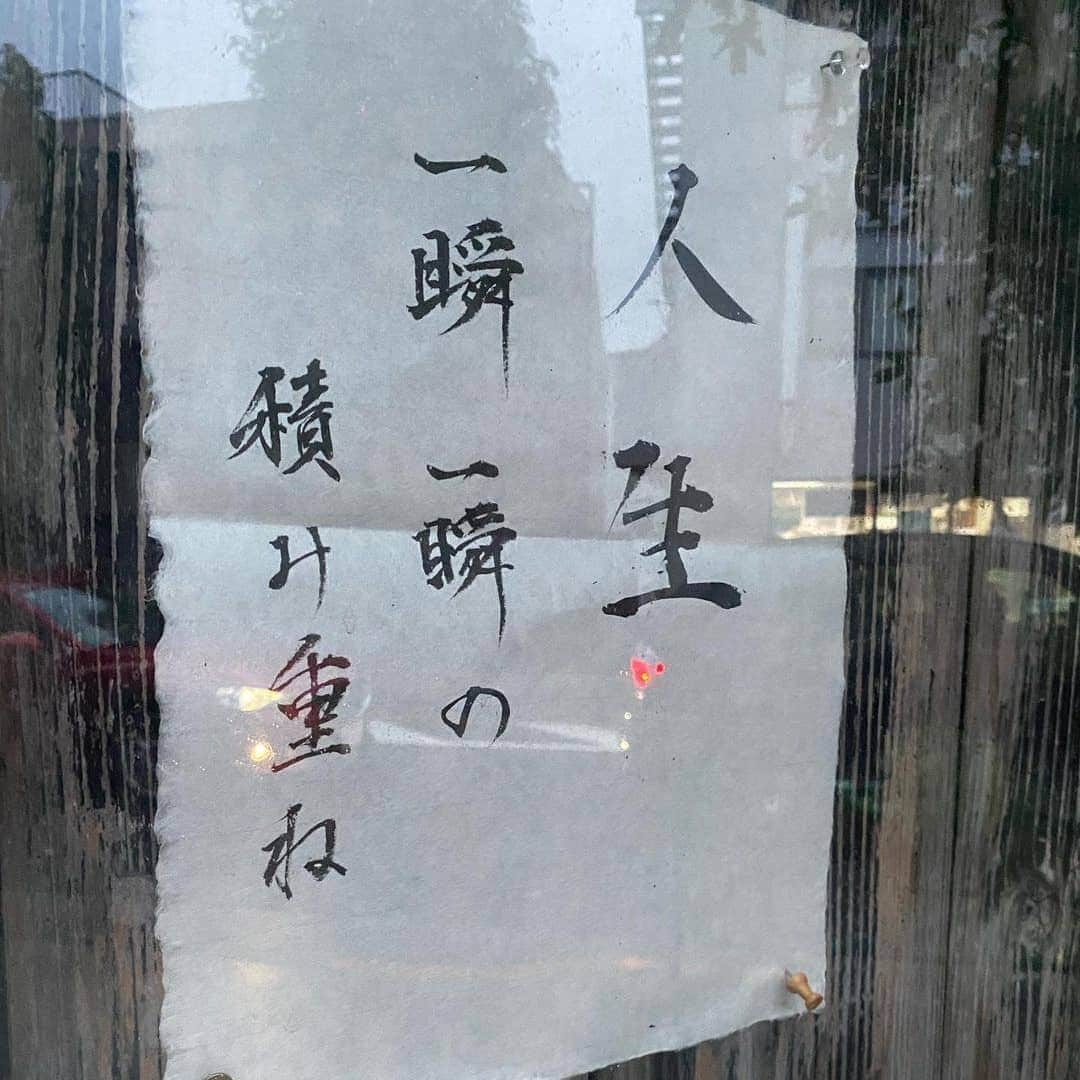 人生
一瞬一瞬の
積み重ね